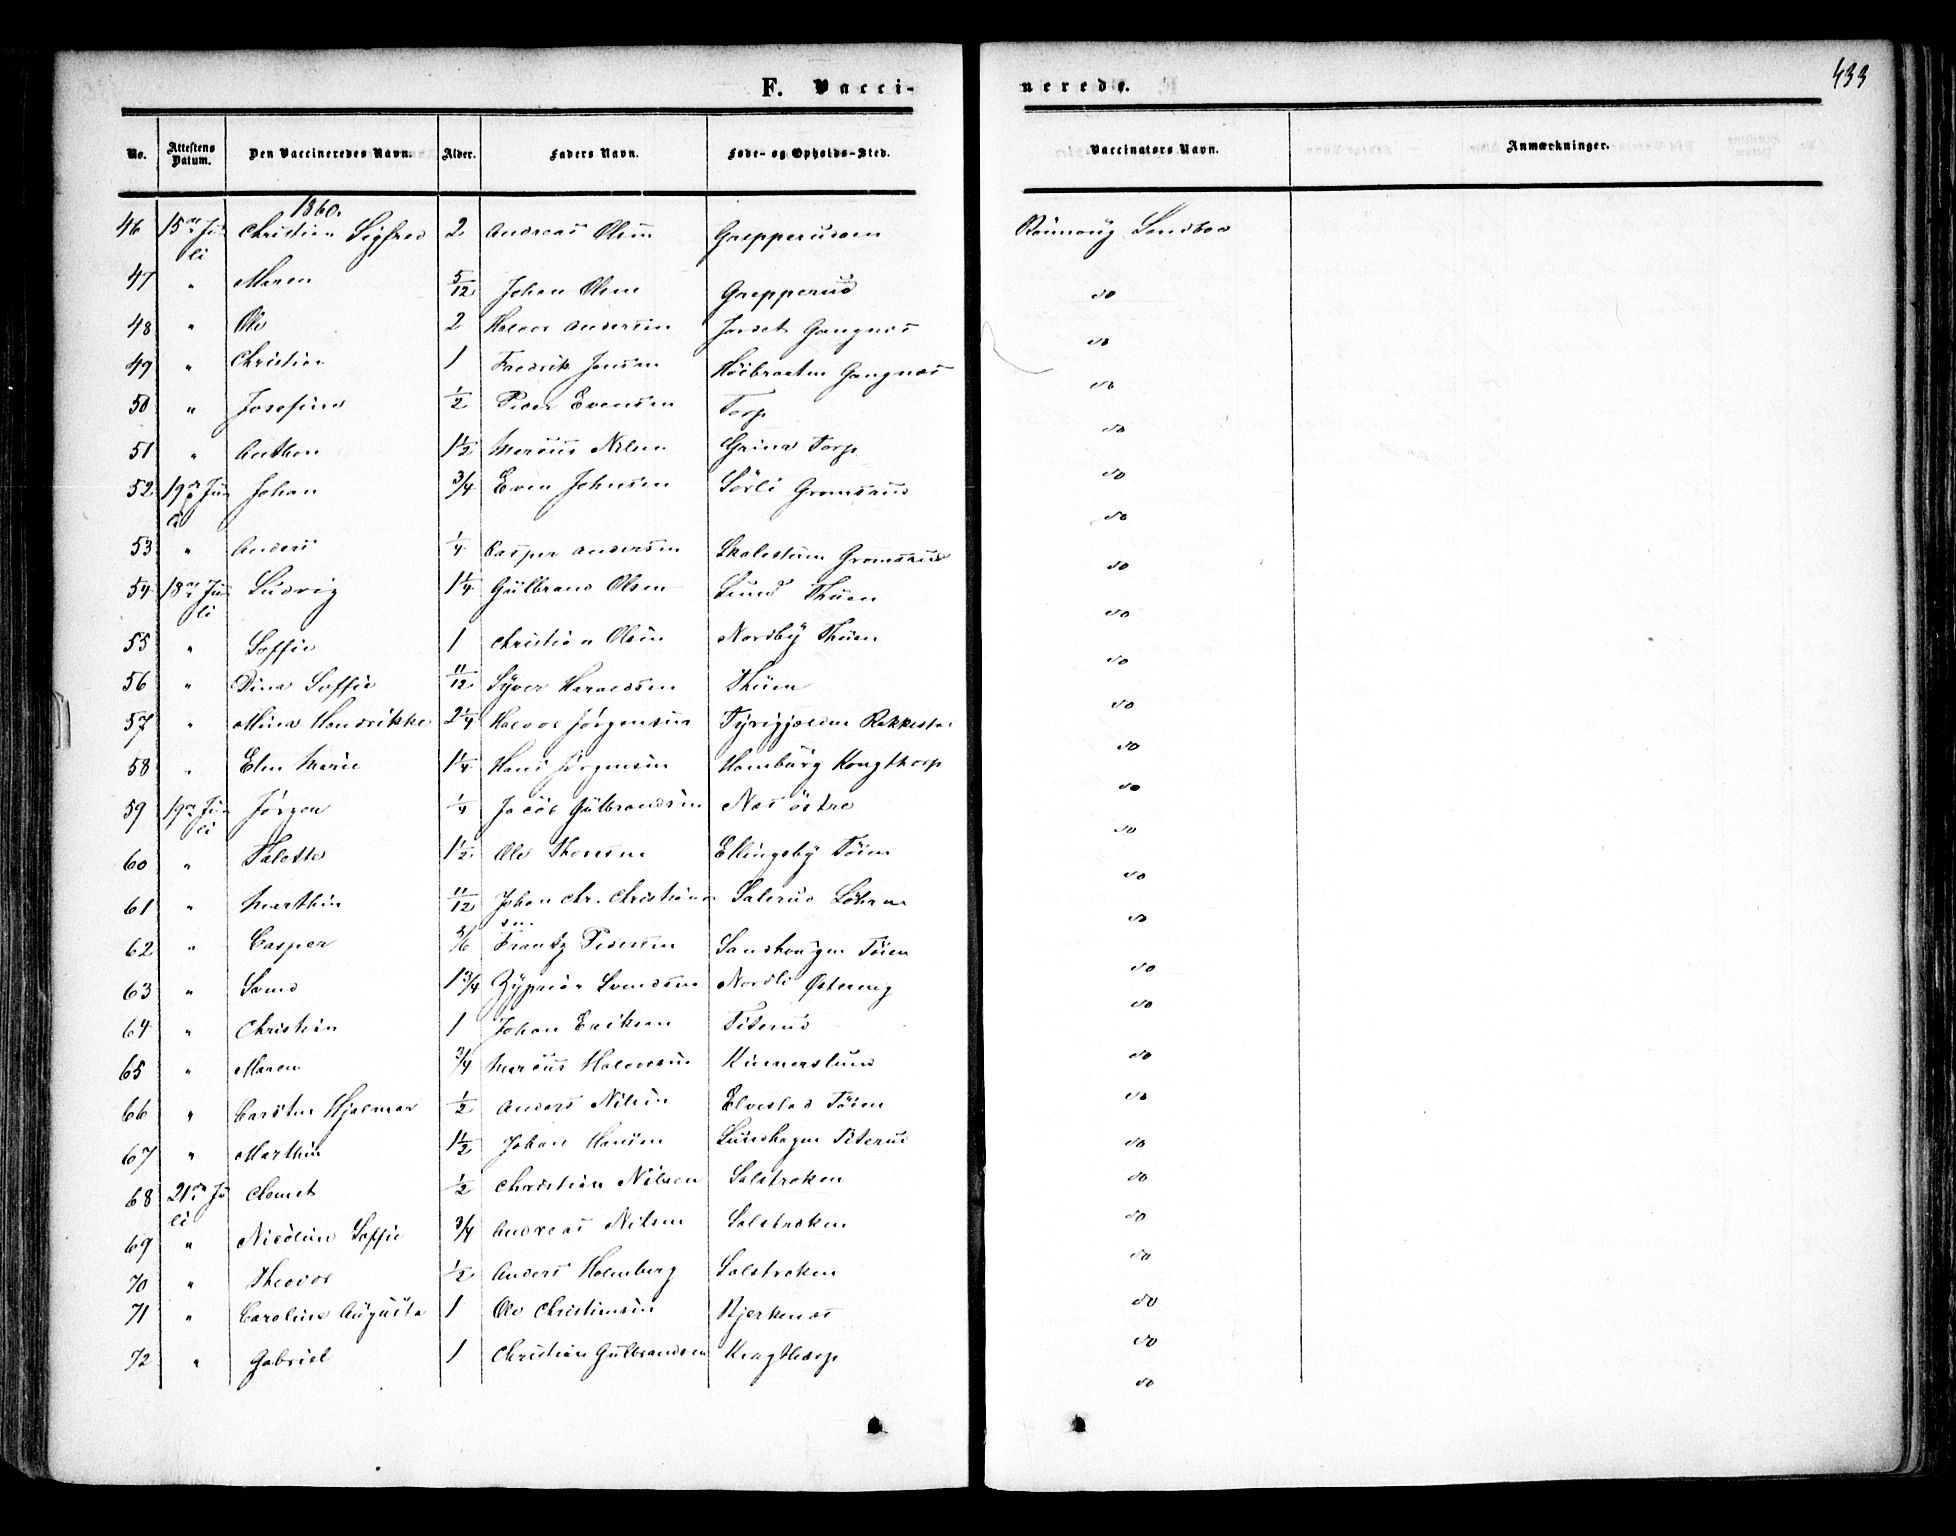 F. Vacci-
nerede.
433
No. Attestens Datum. Den Vaccineredes Navn. Alder. Faders Navn. Føde- og Opholds-Sted. Vaccinators Navn. Anmærkninger.
1860.
46 15de Juli Christian Sigfred 2 Andreas Olsen Græpperudeen Rønnaug Sandboe
47 " Maren 5/12 Johan Olsen Græpperud do
48 " Ole 2 Halvor Andersen Jordet Gangnæs do
49 " Christian 1 Fredrik Jensen Høibraaten Gangnæs do
50 " Josefine 1/2 Peder Evensen Torp do
51 " Anthon 1 1/2 Marcus Nilsen Grina Torp do
52 19de Juli Johan 3/4 Even Johnsen Sørli Gromsrud do
53 " Anders 1/4 Casper Andersen Skalestuen Gromsrud do
54 18de Juli Ludvig 1 1/4 Gulbrand Olsen Lund Thuen do
55 " Soffie 1 Christian Olsen Nordby Thuen do
56 " Dina Soffie 11/12 Syver Haraldsen Thuen do
57 " Mina Hendrikke 2 1/4 Halvor Jørgensen Tyrigjælden Rakkestad do
58 " Elen Marie 1 1/4 Hans Jørgensen Hamburg Kongthorp do
59 19de Juli Jørgen 1/4 Jacob Gulbrandsen Næs østre do
60 " Talette 1 1/2 Ole Thoresen Ellingsby Tøien do
61 " Marthin 11/12 Johan Chr. Christiansen Salerud Løhren do
62 " Casper 5/6 Frantz Pedersen Sandhaugen Tøien do
63 " Svend 1 3/4 Zyprian Svendsen Nordli Østereng do
64 " Christian 1 Johan Eriksen Titerud do
65 " Maren 3/4 Marcus Halvorsen Kinnerslund do
66 " Carsten Hjalmar 1/2 Anders Nilsen Elvestad Tøien do
67 " Marthin 1 1/2 Johan Hansen Lundhagen Titerud do
68 21de Juli Clemet 1/2 Christian Nilsen Solstroken do
69 " Nicoline Soffie 3/4 Andreas Nilsen Solstroken do
70 " Theodor 1/2 Anders Holmberg Solstroken do
71 " Caroline Augusta 1 Ole Christiansen Kjerkenæs do
72 " Gabriel 1 Christian Gulbrandsen Kragthorp do
do